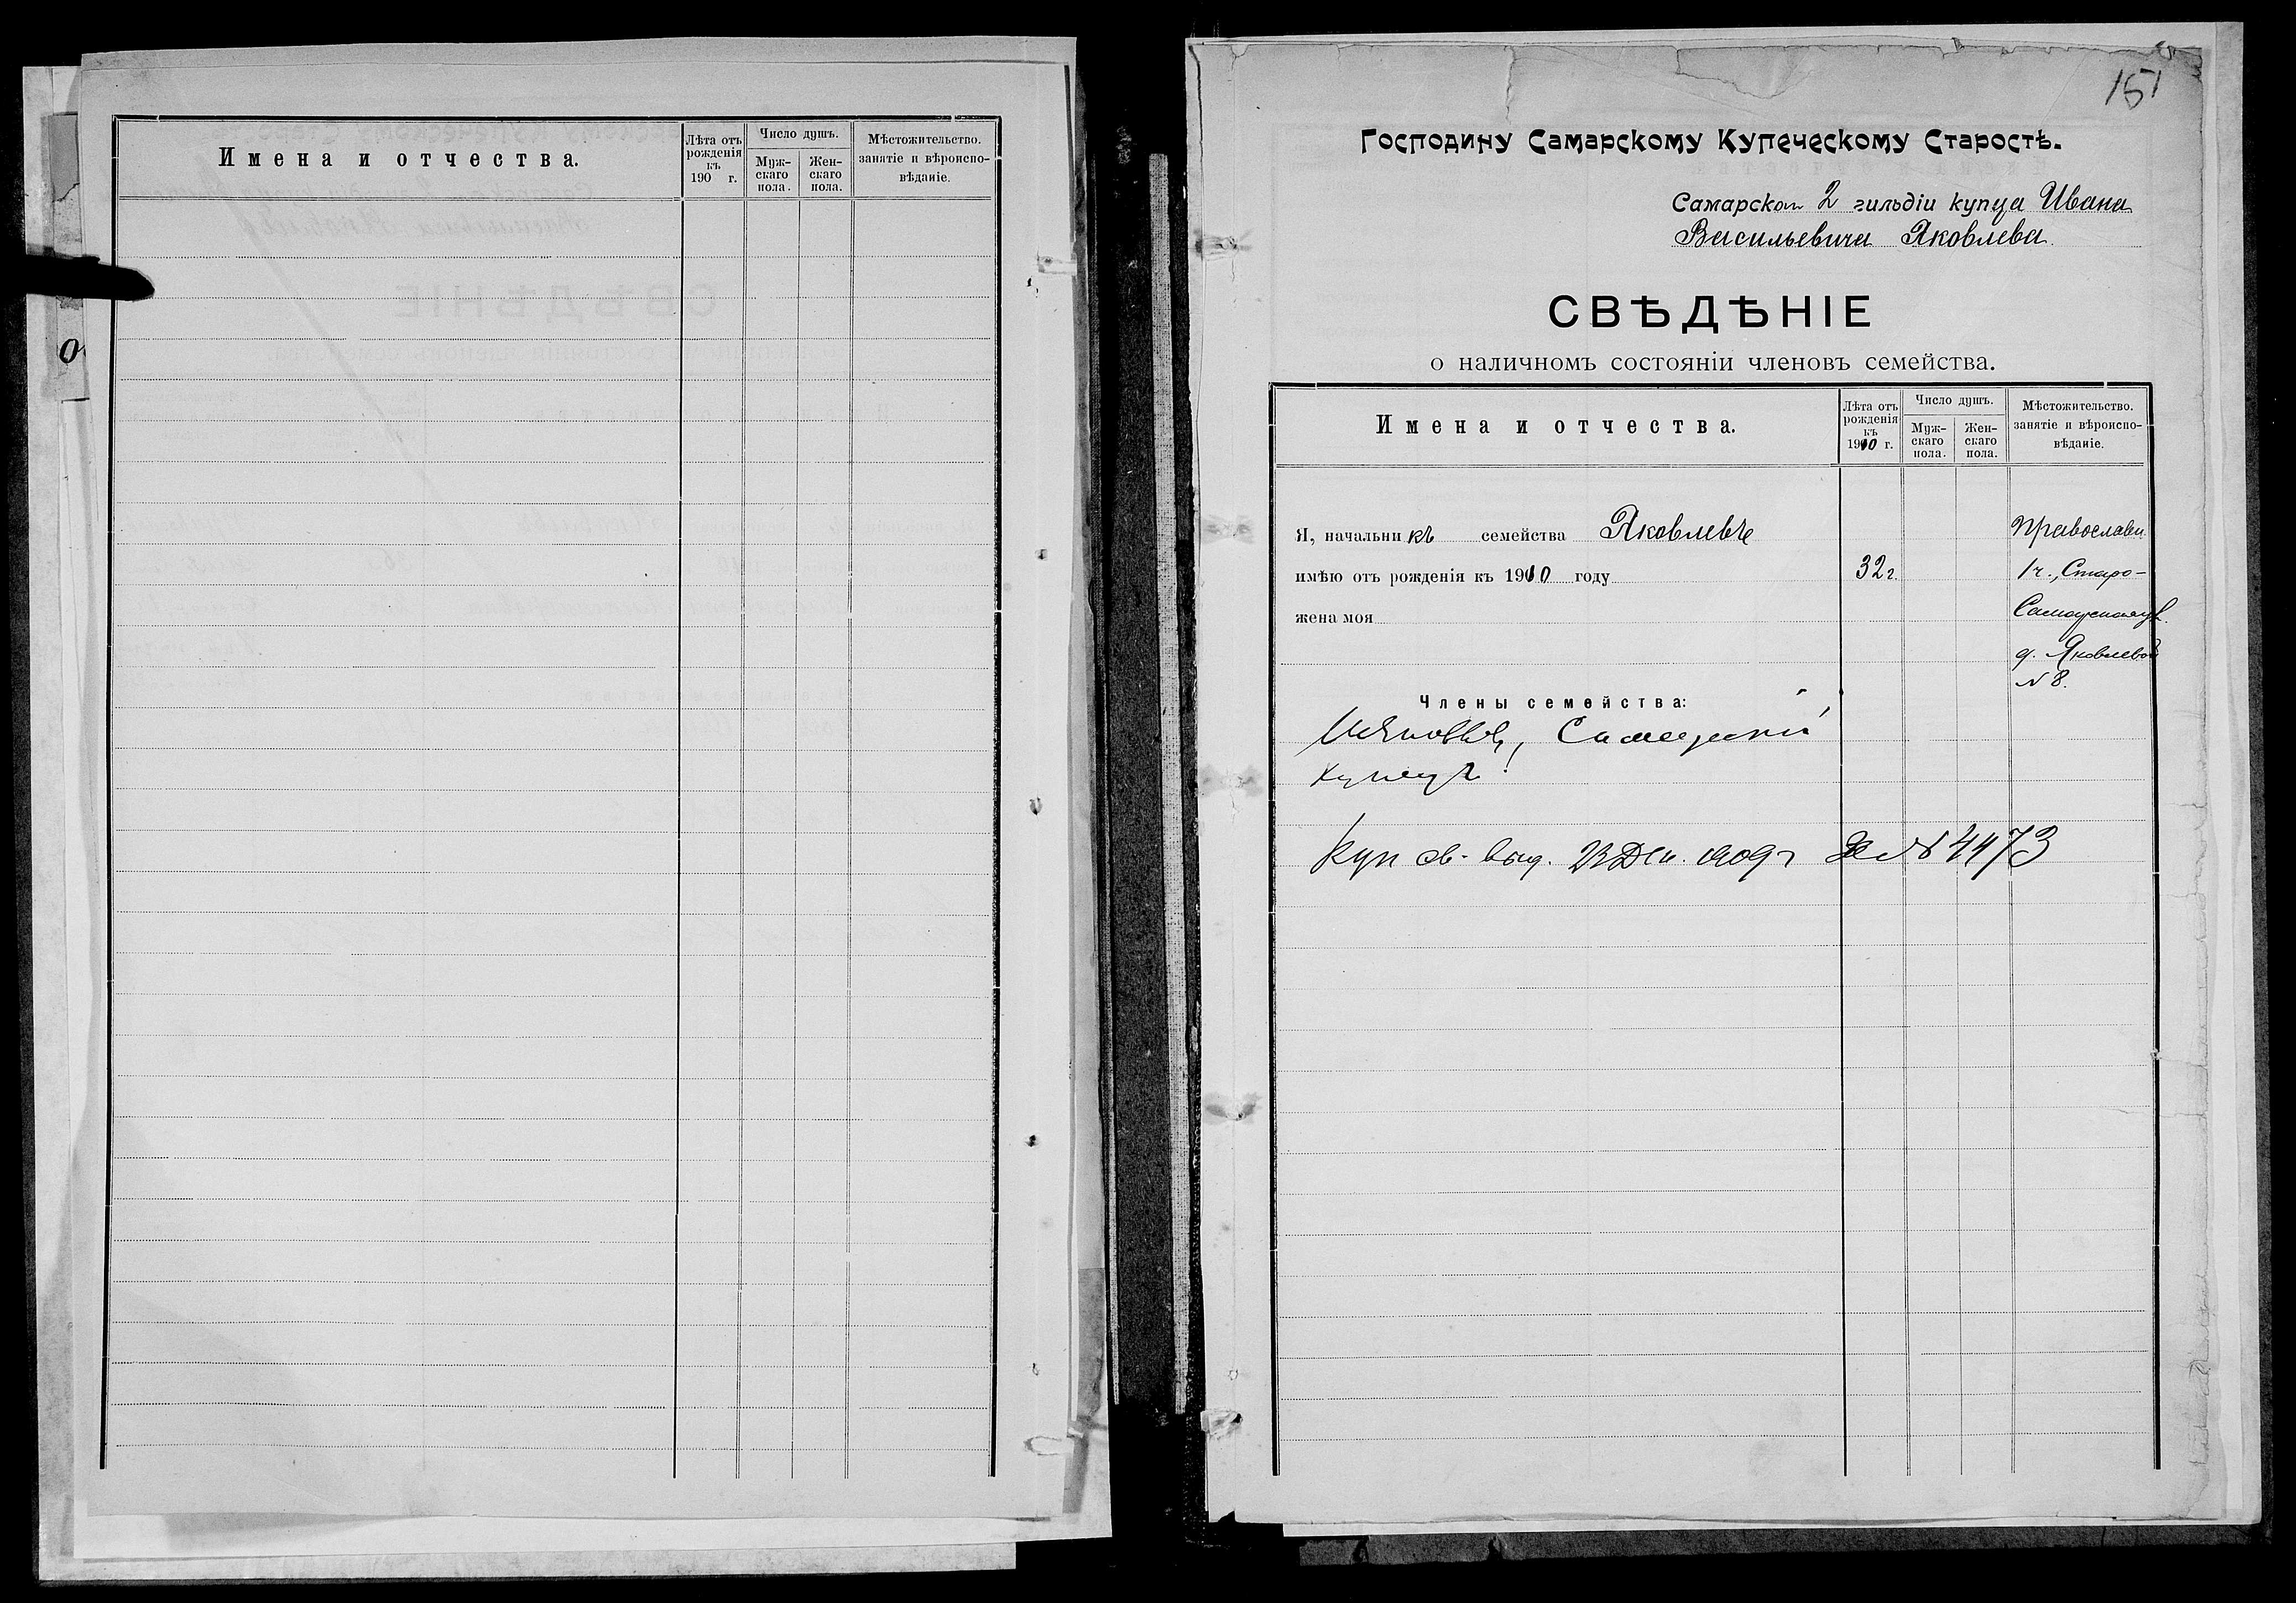 Имена и отчества.
Лѣта отъ рожденія къ 190 г.
Число душъ.
Муж-скаго пола.
Жен-скаго пола.
Мѣстожительство. занятіе и вѣроиспо-вѣданіе.
0
151
Господину Самарскому Купеческому Старостѣ.
Самарской 2 гильдіи купца Ивана
Васильевича Яковлева
СВѢДѢНІЕ
о наличномъ состояніи членовъ семейства.
Имена и отчества.
Лѣта отъ рожденія къ 1910 г.
Число душъ.
Муж-скаго пола.
Жен-скаго пола.
Мѣстожительство. занятіе и вѣроиспо-вѣданіе.
Я, начальникъ семейства Яковлевъ
Православн.
имѣю отъ рожденія къ 1910 году 32 г.
1 ч., Старо-
жена моя
Самарская ул.
д. Яковлевой
№ 8.
Члены семейства:
Самарскій
купецъ
Куп св. выд. 23 Дек. 1909 г № 4473